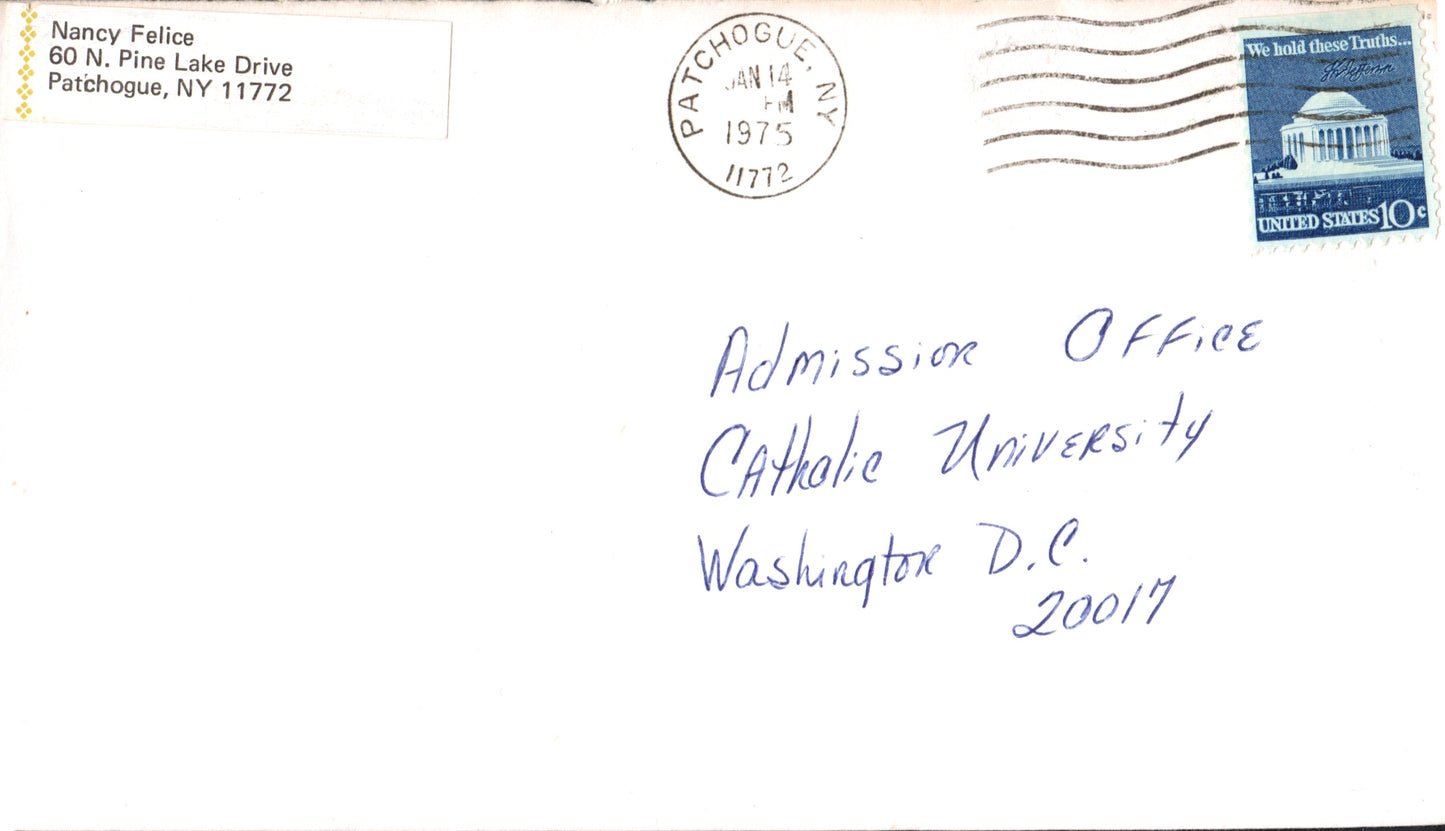 Nancy Felice
60 N. Pine Lake Drive
Patchogue, NY 11772
PATCHOGUE, NY
JAN 14
PM
1975
11772
We hold these Truths...
Th Jefferson
UNITED STATES 10c
Admission Office
Catholic University
Washington D.C.
20017